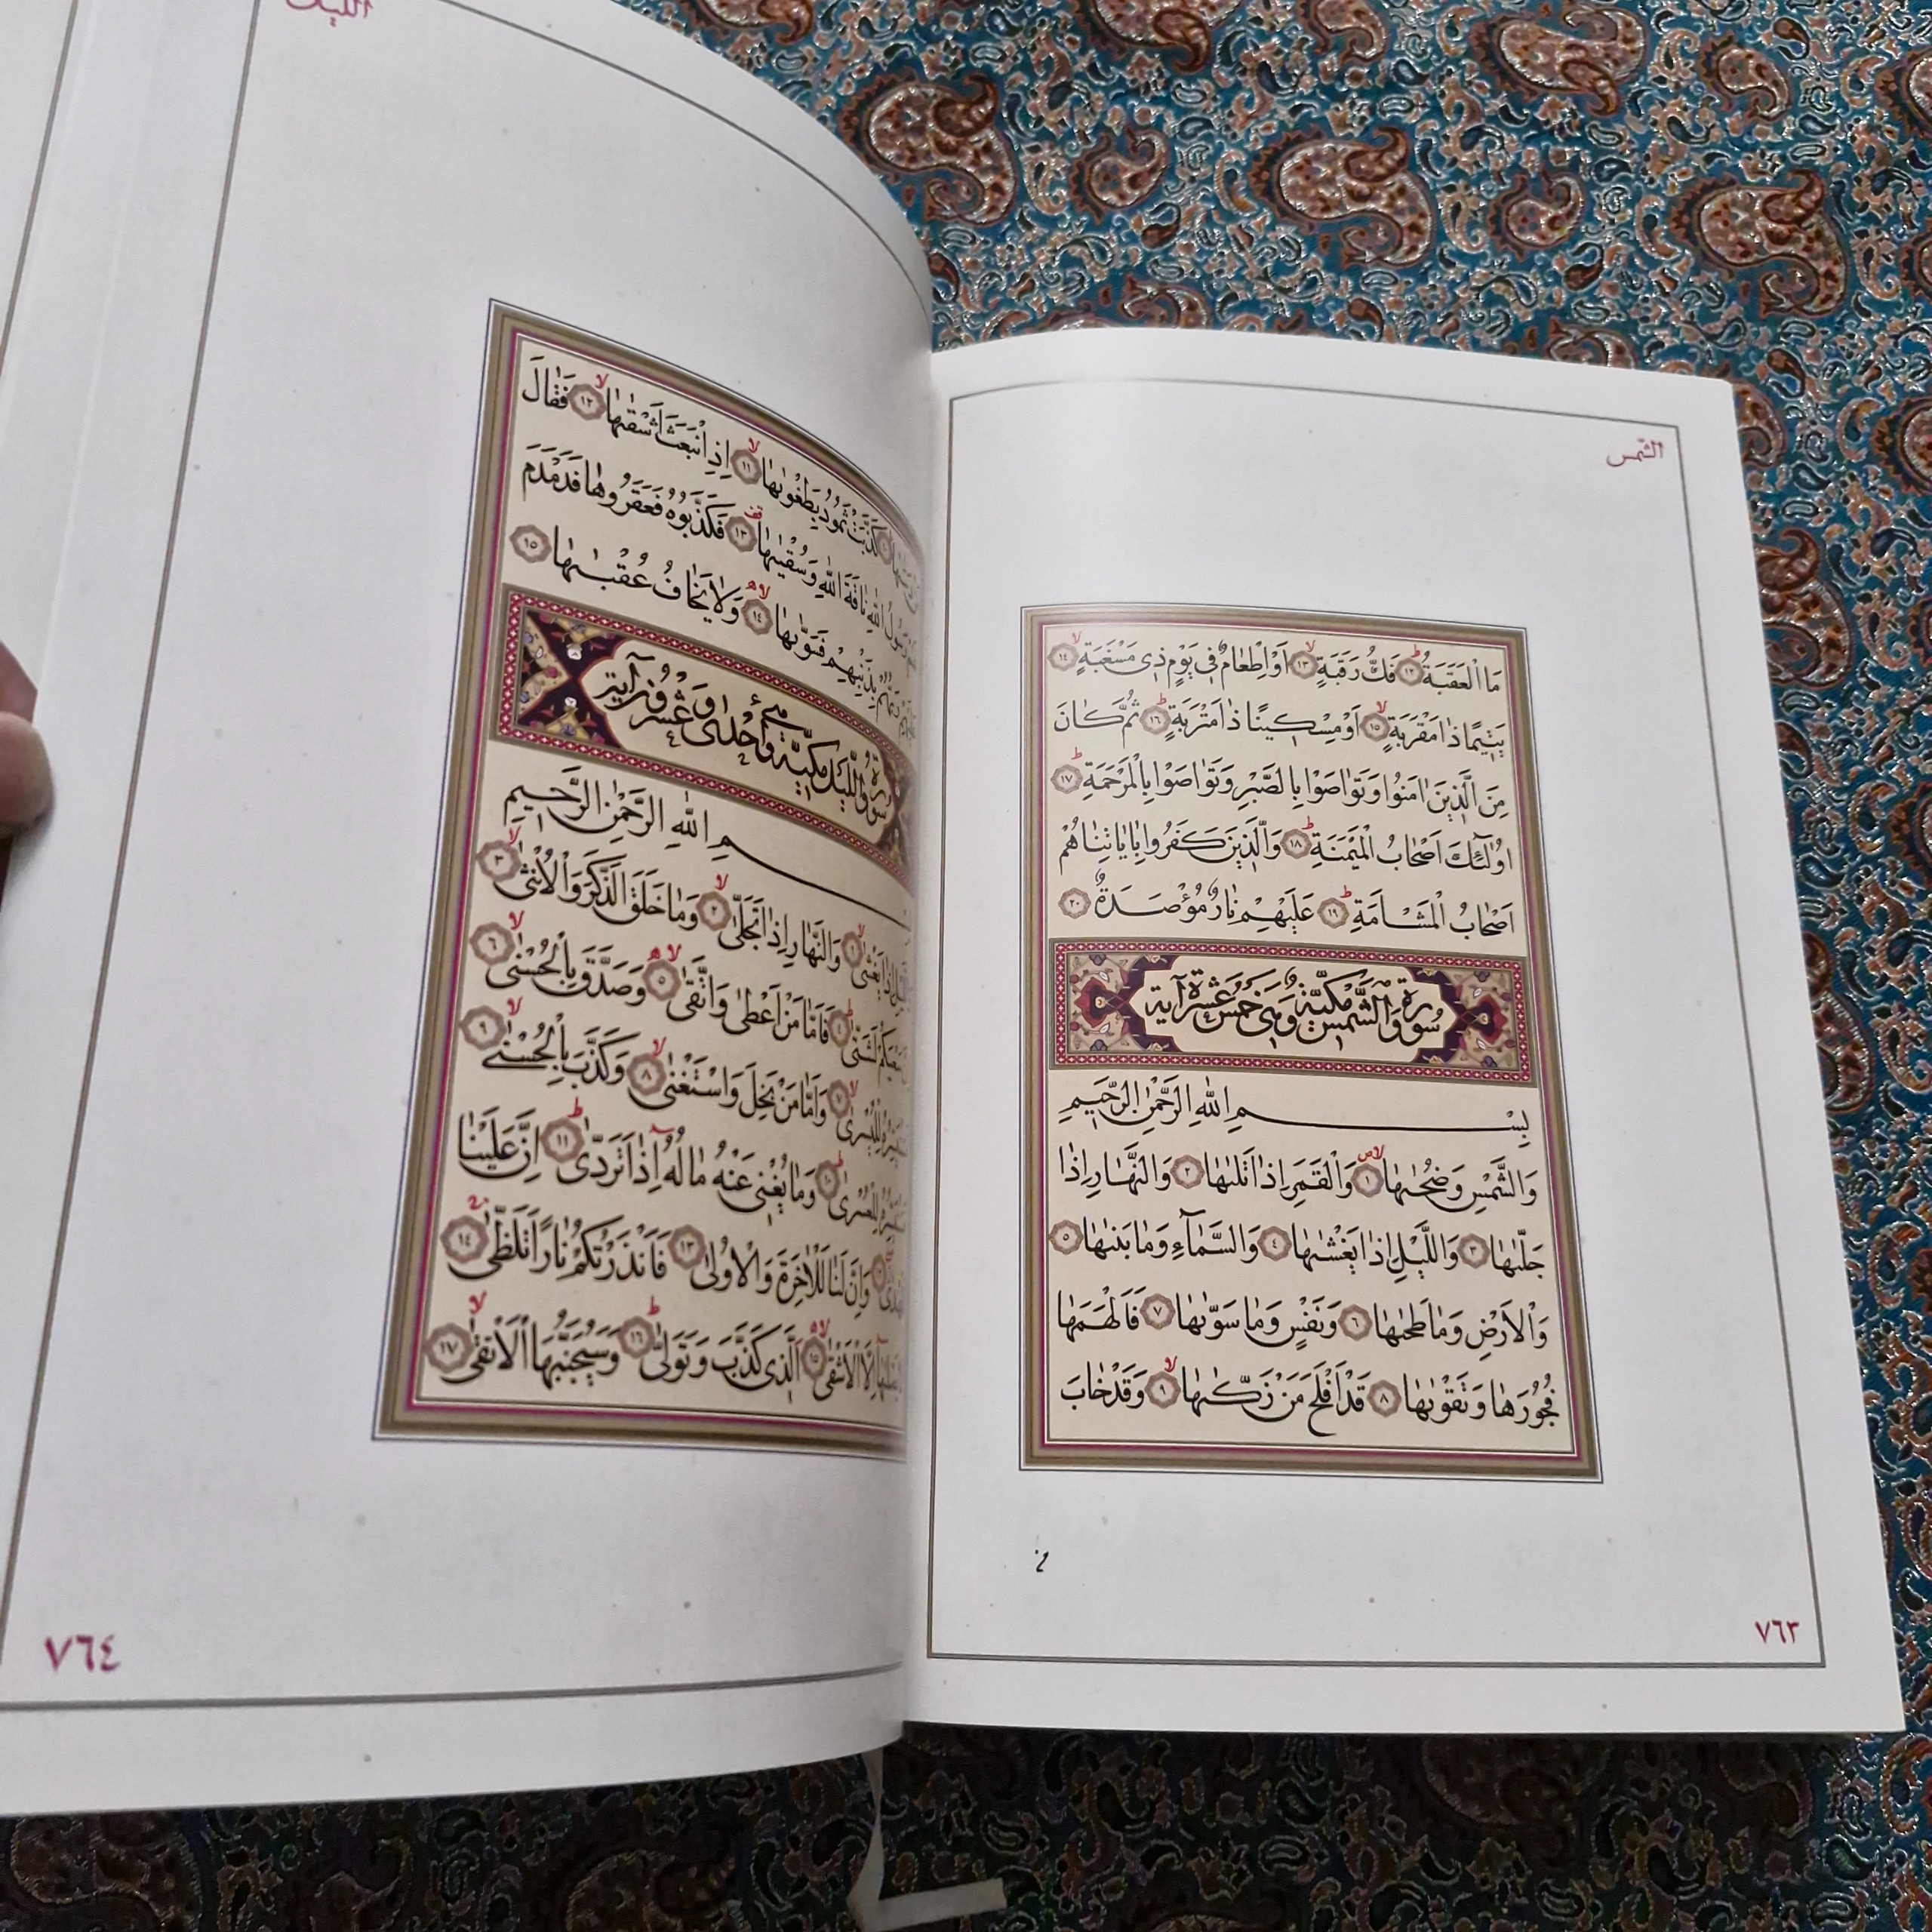 الشّمس
مَا الْعَقَبَةُ ١٢ فَكُّ رَقَبَةٍ ١٣ اَوْ اِطْعَامٌ فِي يَوْمٍ ذِي مَسْغَبَةٍ ١٤
يَتِيمًا ذَا مَقْرَبَةٍ ١٥ اَوْ مِسْكِينًا ذَا مَتْرَبَةٍ ١٦ ثُمَّ كَانَ
مِنَ الَّذِينَ اٰمَنُوا وَتَوَاصَوْا بِالصَّبْرِ وَتَوَاصَوْا بِالْمَرْحَمَةِ ١٧
اُولٰٓئِكَ اَصْحَابُ الْمَيْمَنَةِ ١٨ وَالَّذِينَ كَفَرُوا بِاٰيَاتِنَا هُمْ
اَصْحَابُ الْمَشْاَمَةِ ١٩ عَلَيْهِمْ نَارٌ مُؤْصَدَةٌ ٢٠
سُورَةُ وَالشَّمْسِ مَكِّيَّةٌ وَهِيَ خَمْسَ عَشْرَةَ آيَة
بِسْمِ اللهِ الرَّحْمٰنِ الرَّحِيمِ
وَالشَّمْسِ وَضُحٰيهَا ١ وَالْقَمَرِ اِذَا تَلٰيهَا ٢ وَالنَّهَارِ اِذَا
جَلّٰيهَا ٣ وَاللَّيْلِ اِذَا يَغْشٰيهَا ٤ وَالسَّمَآءِ وَمَا بَنٰيهَا ٥
وَالْاَرْضِ وَمَا طَحٰيهَا ٦ وَنَفْسٍ وَمَا سَوّٰيهَا ٧ فَاَلْهَمَهَا
فُجُورَهَا وَتَقْوٰيهَا ٨ قَدْ اَفْلَحَ مَنْ زَكّٰيهَا ٩ وَقَدْ خَابَ
٧٦٣
كَذَّبَتْ ثَمُودُ بِطَغْوٰيهَا ١١ اِذِ انْبَعَثَ اَشْقٰيهَا ١٢ فَقَالَ
رَسُولُ اللهِ نَاقَةَ اللهِ وَسُقْيٰيهَا ١٣ فَكَذَّبُوهُ فَعَقَرُوهَا فَدَمْدَمَ
بِذَنْبِهِمْ فَسَوّٰيهَا ١٤ وَلَا يَخَافُ عُقْبٰيهَا ١٥
سُورَةُ وَاللَّيْلِ مَكِّيَّةٌ وَهِيَ اِحْدٰى وَعِشْرُونَ آيَة
بِسْمِ اللهِ الرَّحْمٰنِ الرَّحِيمِ
اِذَا يَغْشٰى ١ وَالنَّهَارِ اِذَا تَجَلّٰى ٢ وَمَا خَلَقَ الذَّكَرَ وَالْاُنْثٰى ٣
سَعْيَكُمْ لَشَتّٰى ٤ فَاَمَّا مَنْ اَعْطٰى وَاتَّقٰى ٥ وَصَدَّقَ بِالْحُسْنٰى ٦
لِلْيُسْرٰى ٧ وَاَمَّا مَنْ بَخِلَ وَاسْتَغْنٰى ٨ وَكَذَّبَ بِالْحُسْنٰى ٩
لِلْعُسْرٰى ١٠ وَمَا يُغْنِي عَنْهُ مَالُهُ اِذَا تَرَدّٰى ١١ اِنَّ عَلَيْنَا
وَاِنَّ لَنَا لَلْاٰخِرَةَ وَالْاُولٰى ١٣ فَاَنْذَرْتُكُمْ نَارًا تَلَظّٰى ١٤
اِلَّا الْاَشْقٰى ١٥ الَّذِي كَذَّبَ وَتَوَلّٰى ١٦ وَسَيُجَنَّبُهَا الْاَتْقٰى ١٧
٧٦٤